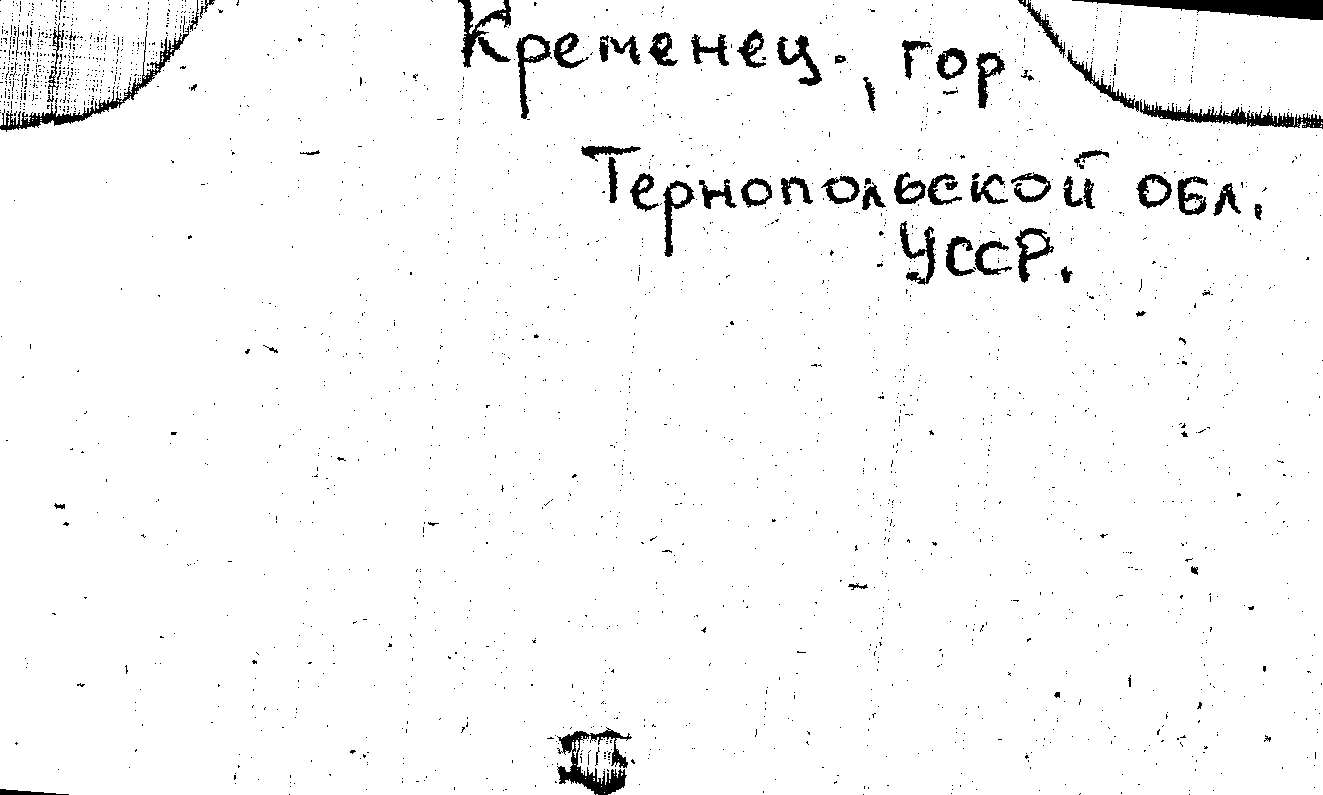 Кременец., гор.
Тернопольской обл.
УССР.